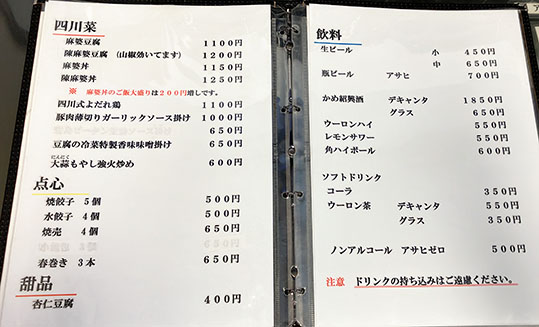 四川菜
麻婆豆腐 1100円
陳麻婆豆腐 (山椒効いてます) 1200円
麻婆丼 1150円
陳麻婆丼 1250円
※ 麻婆丼のご飯大盛りは200円増しです。
四川式よだれ鶏 1100円
豚肉薄切りガーリックソース掛け 1000円
650円
豆腐の冷菜特製香味味噌掛け 650円
にんにく
大蒜もやし強火炒め 600円
点心
焼餃子 5個 500円
水餃子 4個 500円
焼売 4個 650円
春巻き 3本 650円
甜品
杏仁豆腐 400円
飲料
生ビール 小 450円
中 650円
瓶ビール アサヒ 700円
かめ紹興酒 デキャンタ 1850円
グラス 650円
ウーロンハイ 550円
レモンサワー 550円
角ハイボール 600円
ソフトドリンク
コーラ 350円
ウーロン茶 デキャンタ 550円
グラス 350円
ノンアルコール アサヒゼロ 500円
注意 ドリンクの持ち込みはご遠慮ください。